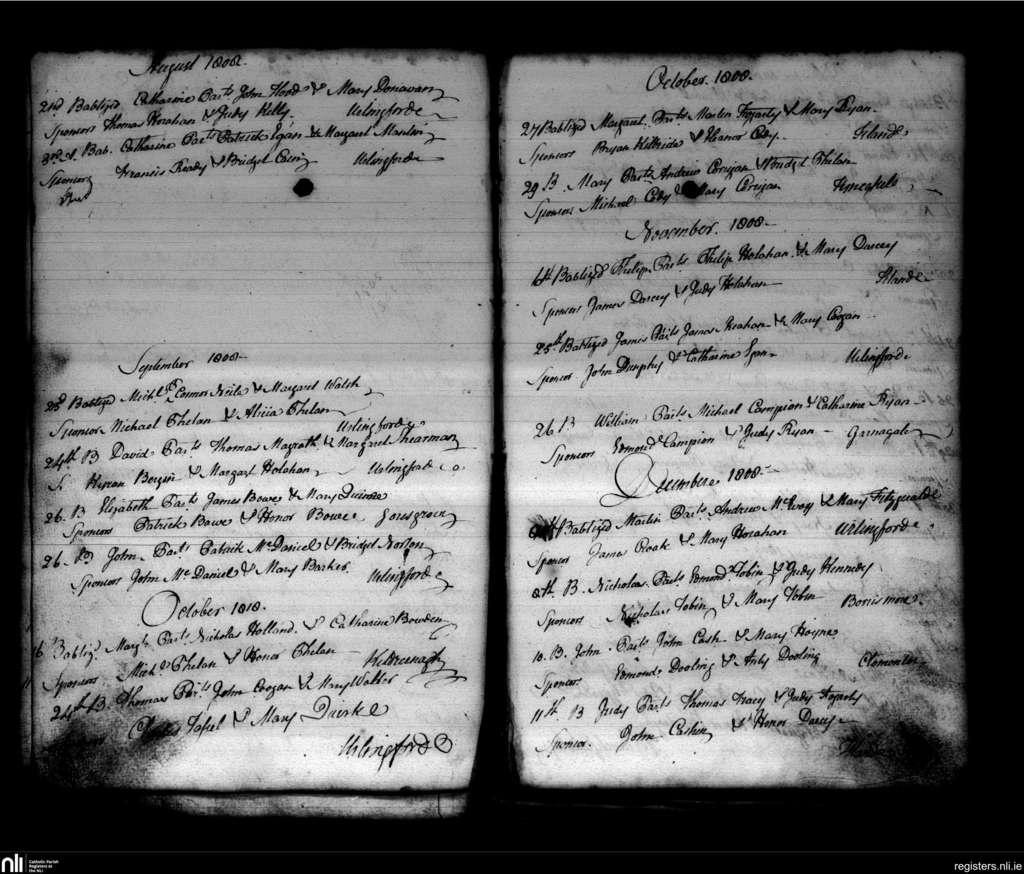 August 1808.
21st Babtized Catharine Parts John Hord & Mary Donavan
Sponsors Thomas Horahan & Judy Kelly Urlingforde
Bab. Catharine Parts Patrick Egan & Margaret Mantin
Sponsors Francis Ready & Bridget Urlingforde
September 1808
23d Babtized Michl. Parts Connor Neile & Margaret Walsh
Sponsors Michael Phelan & Alicia Phelan Urlingforde
24th B David Parts Thomas Magrath & Margaret Shearman
S. Kyran Bergin & Margaret Holahan Urlingford
26. B Elizabeth Parts James Bowe & Mary Quirke
Sponsors Patrick Bowe & Honor Bowe
26. B John Parts Patrick Mc Daniel & Bridget Norton
Sponsors John Mc Daniel & Mary Barker. Urlingforde
October 1808.
16 Babtizd. Margt. Parts Nicholas Holland & Catharine Bowden
Sponsors Michl. Phelan & Honor Phelan
24th B. Thomas Parts John Coogan & Mary Walker
& Mary Quirke
Urlingford
October. 1808.
27 Babtized Margaret Parts Martin Fogarty & Mary Ryan.
Sponsors Bryan Kilbride & Eleanor Cody. Islande
29 B. Mary Parts Andrew Corrigan & Bridget Phelan
Sponsors Michael Cody & Mary Corrigan
November. 1808.
Babtized Philip Parts Philip Holahan & Mary Darcey
Sponsors James Darcey & Judy Holahan Islande
25th Babtized James Parts James Horahan & Mary Coogan
Sponsor John Dunphy & Catharine Egan Urlingforde
26 B William Parts Michael Campion & Catharine Ryan
Sponsors Edmond Campion & Judy Ryan
December 1808
Babtized Martin Parts Andrew McEvoy & Mary Fitzgerald
Sponsor James Croak & Mary Horahan Urlingforde
8th B. Nicholas Parts Edmond Tobin & Judy Kennedy
Sponsors Nicholas Tobin & Mary Tobin Borrismore.
10. B. John Parts John Cash & Mary Hoyne
Sponsors Edmond Dooling & Anty Dooling
11th B Judy Parts Thomas Tracy & Judy Fogarty
Sponsor. John Cashin & Honor Darcy
nli
Catholic Parish
Registers at
the NLI
registers.nli.ie